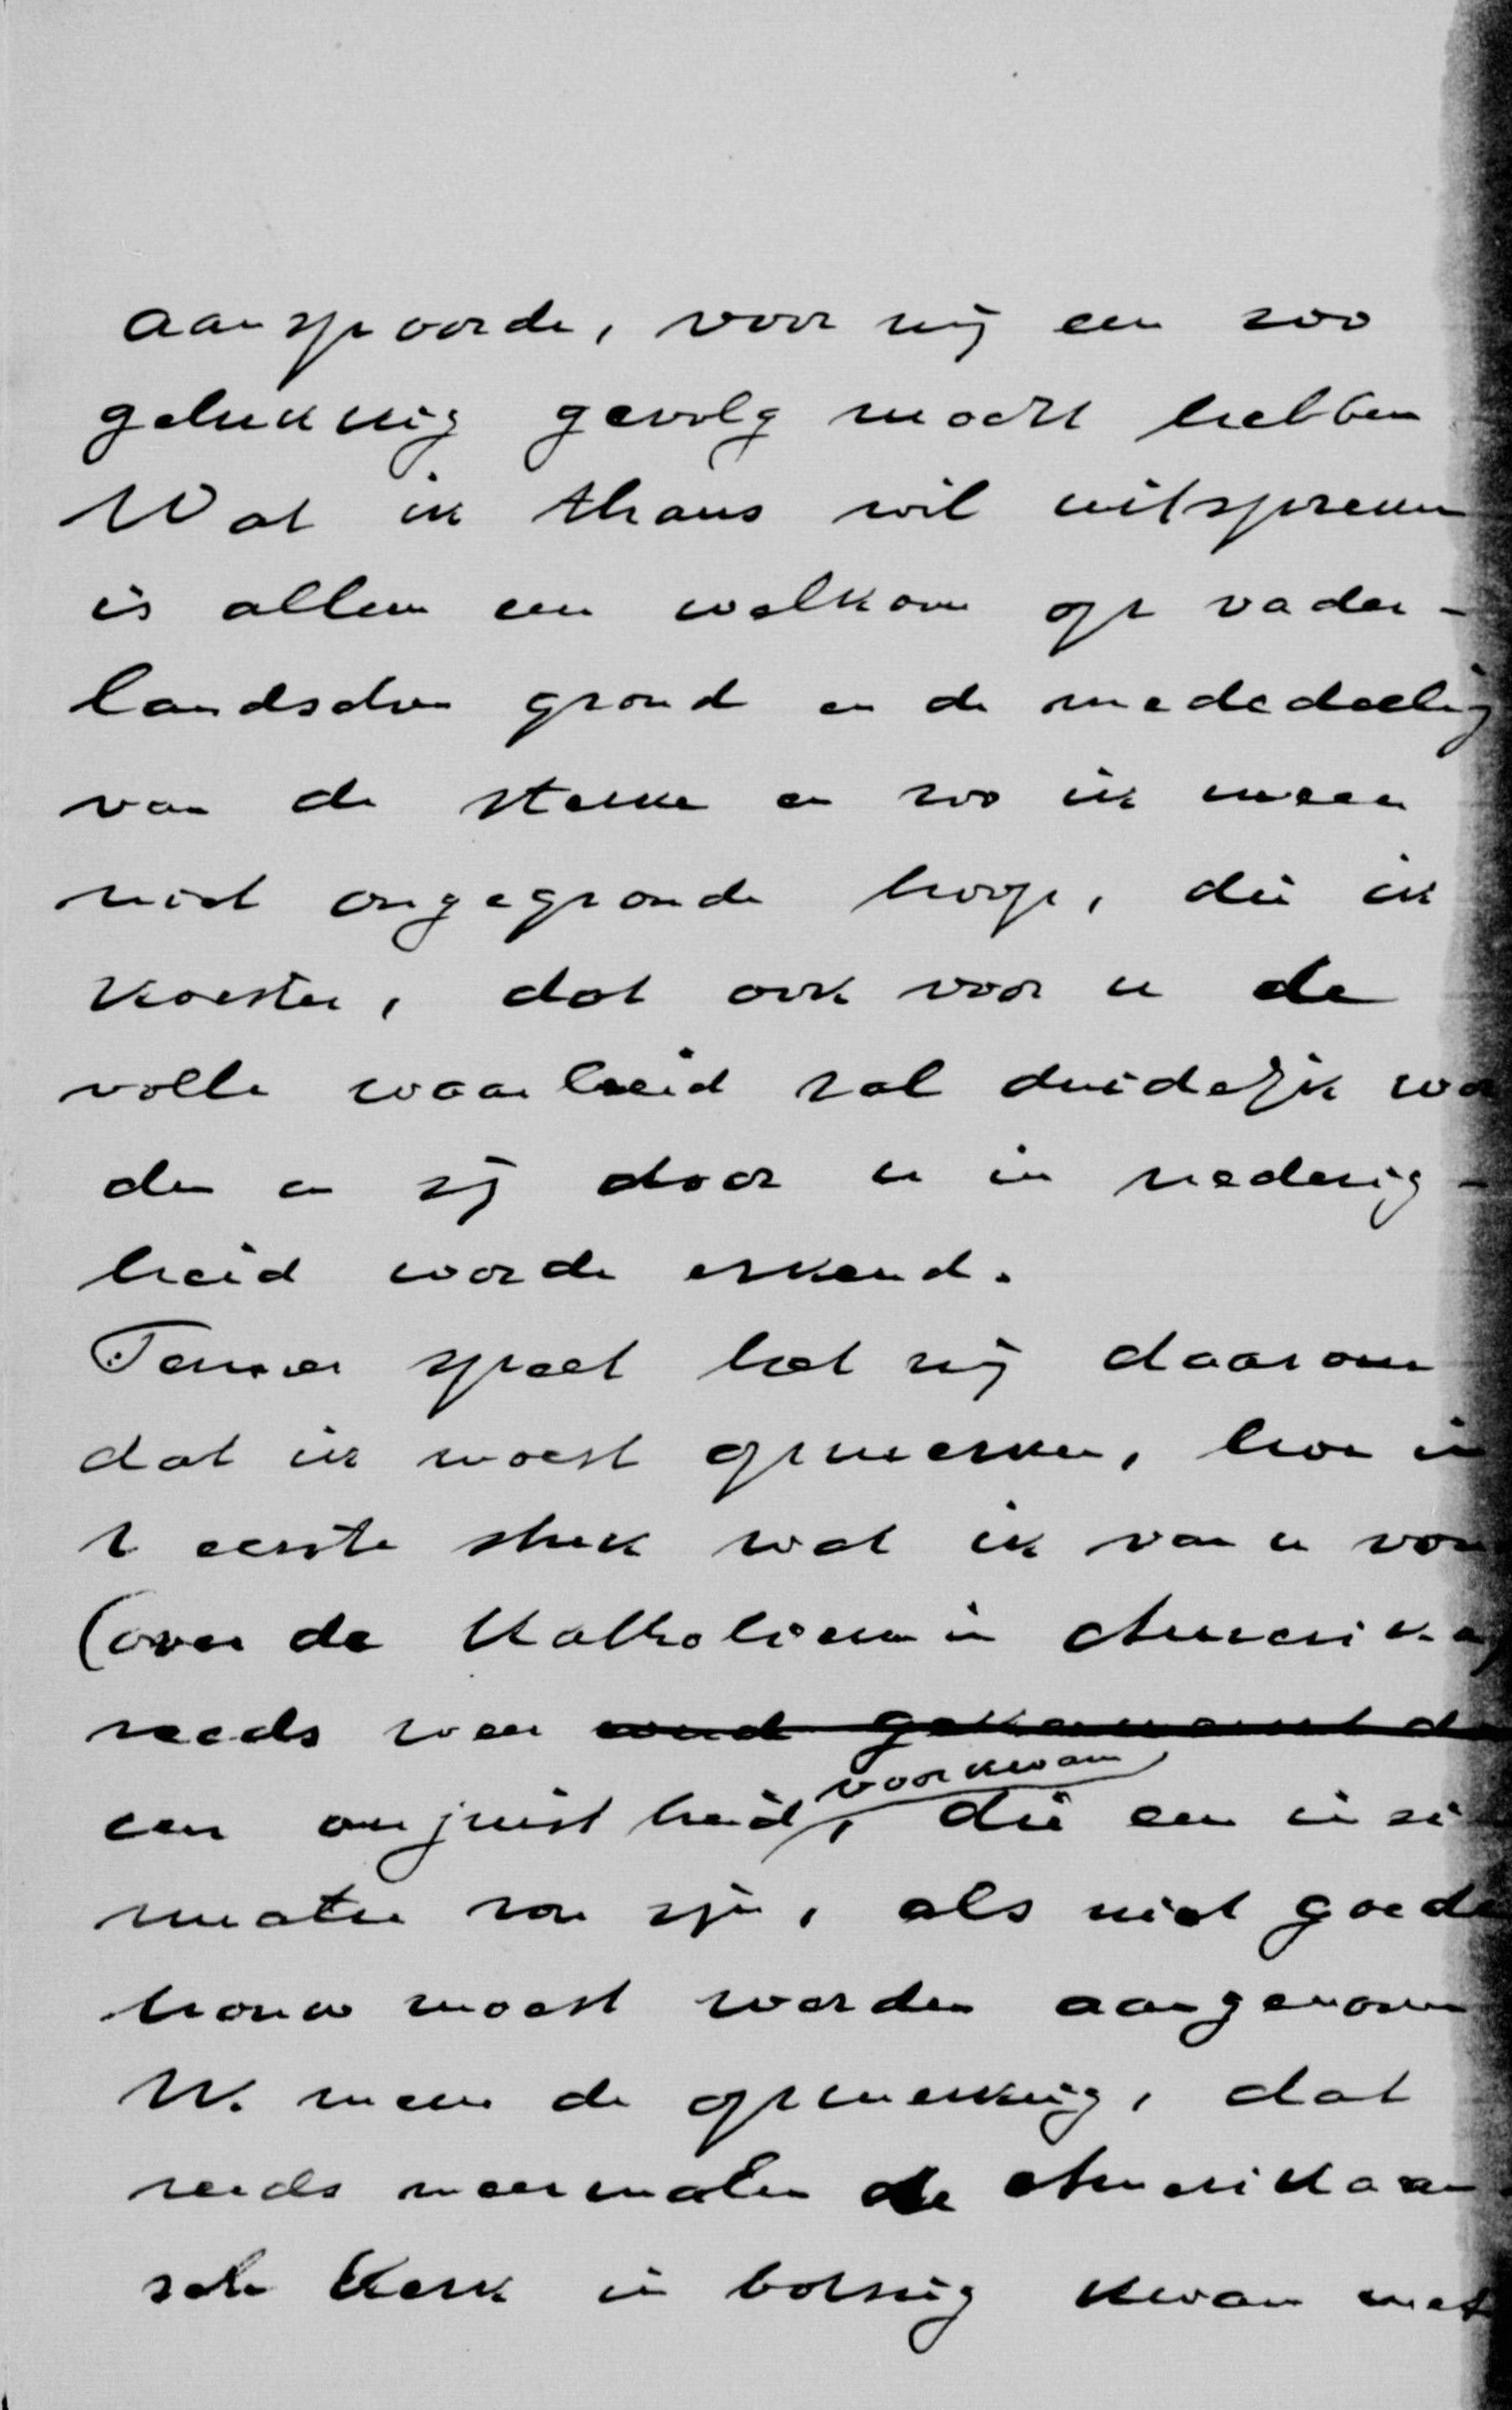 aanspoorde, voor mij een zoo
gelukkig gevolg mocht hebben
Wat ik thans wil uitspreken
is alleen een welkom op vader-
landschen grond en de mededeeling
van de sterke en zoo ik meen
niet ongegronde hoop, die ik
koester, dat ook voor u de
volle waarheid zal duidelijk wor
den en zij door u in nederig-
heid worde erkend.
Temeer speet het mij daarom
dat ik moest opmerken, hoe in
't eerste stuk wat ik van u vond
(over de Katholieken in Amerika)
reeds weer
een onjuistheid voorkwam, die een insi
nuatie zou zijn, als niet goede
trouw moest worden aangenomen
W. meen de opmerking, dat
reeds meermalen de Amerikaan
sche Kerk in botsing kwam met